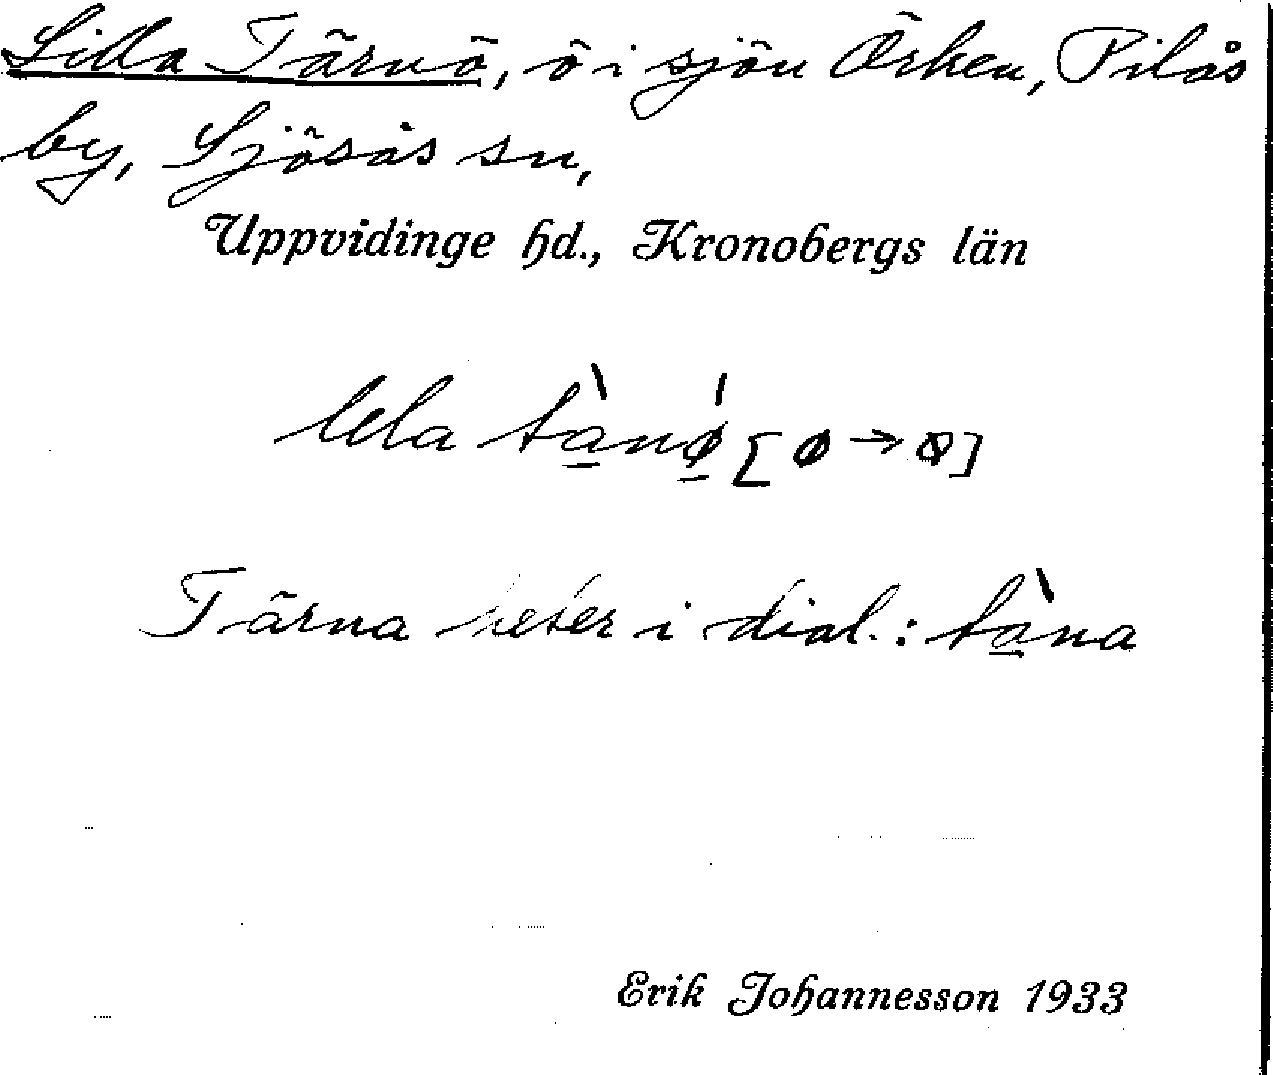 Lilla Tärnö, ö i sjön Örken, Pilås
by, Sjösås sn,
Uppvidinge hd., Kronobergs län
lela tà̠nǿ̠ [ø → ꝋ]
Tärna heter i dial.: tà̠na
Erik Johannesson 1933